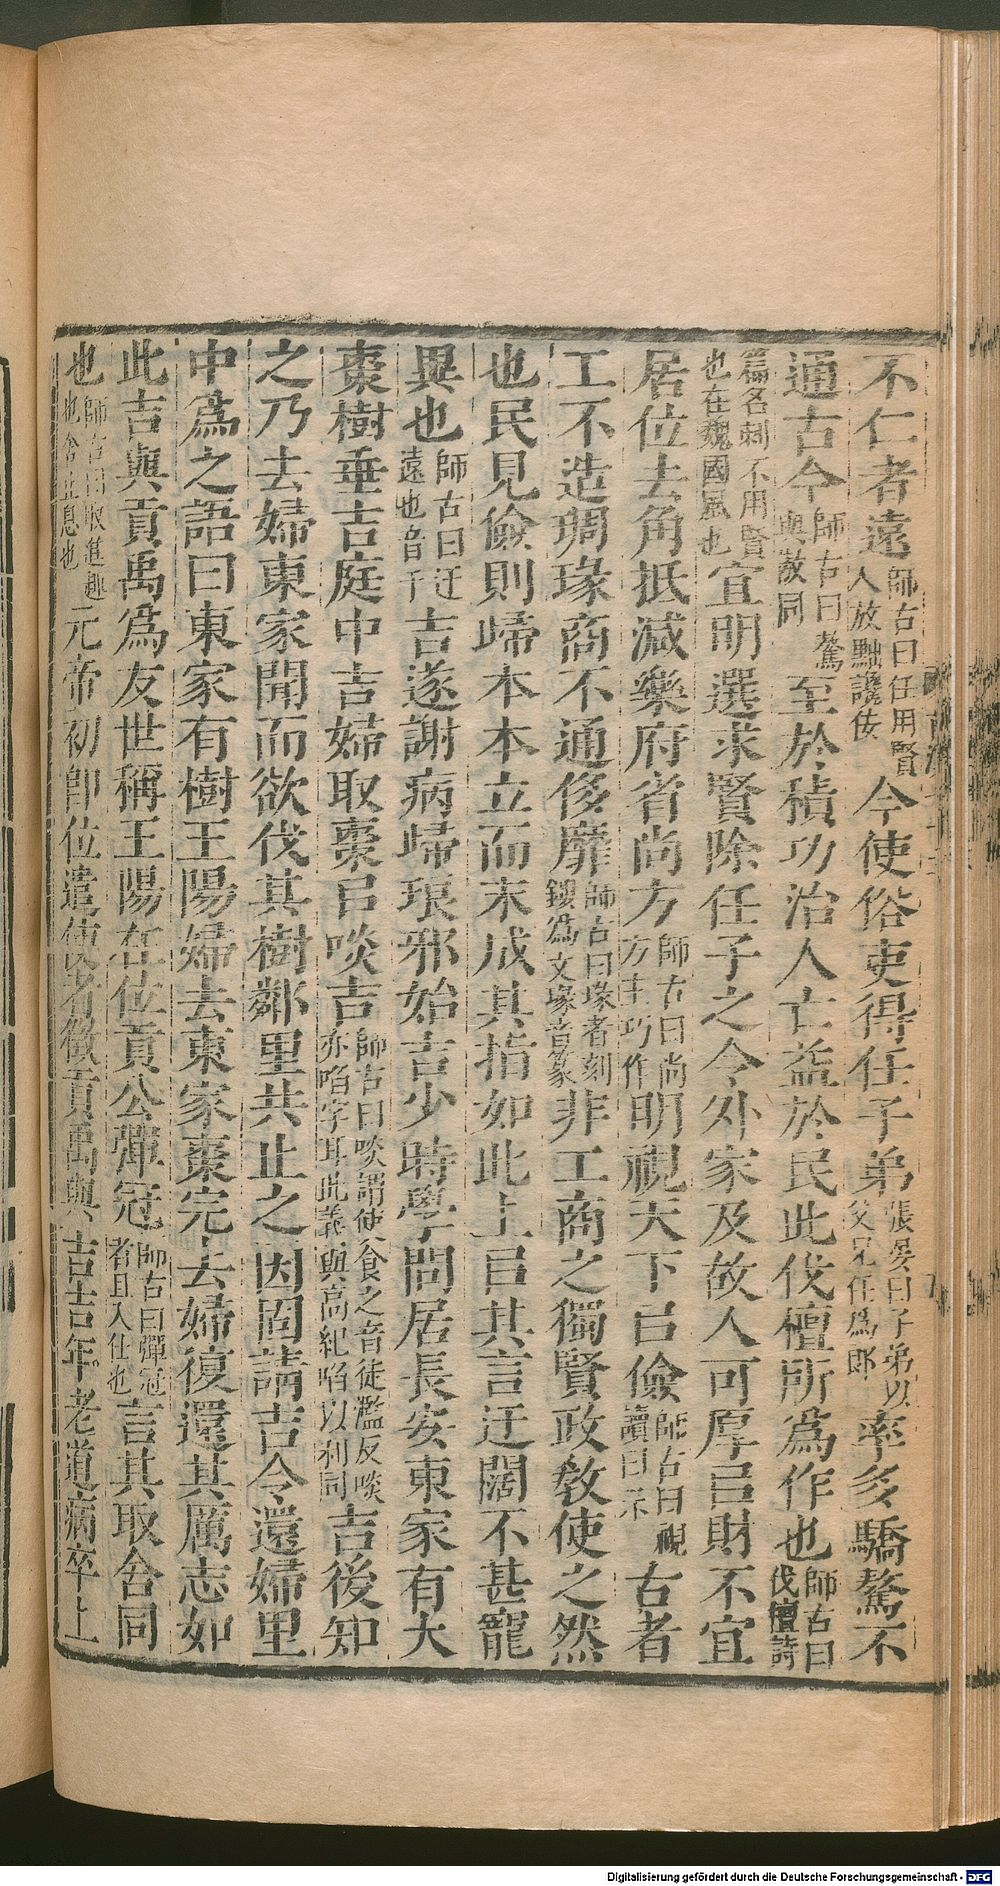 不仁者遠師古曰任用賢人放黜讒佞今使俗吏得任子弟張晏曰子弟以父兄任爲郎率多驕驁不
通古今師古曰驁與敖同至於積功治人亡益於民此伐檀所爲作也師古曰伐檀詩
篇名刺不用賢也在魏國風也宜明選求賢除任子之令外家及故人可厚㠯財不宜
居位去角抵減樂府省尚方師古曰尚方主巧作明視天下㠯儉師古曰視讀曰示古者
工不造琱瑑商不通侈靡師古曰瑑者刻鏤爲文瑑音篆非工商之獨賢政敎使之然
也民見儉則歸本本立而末成其指如此上㠯其言迂闊不甚寵
異也師古曰迂遠也音于吉遂謝病歸琅邪始吉少時學問居長安東家有大
棗樹垂吉庭中吉婦取棗㠯啖吉師古曰啖謂使食之音徒濫反啖亦啗字耳此義與高紀啗以利同吉後知
之乃去婦東家聞而欲伐其樹鄰里共止之因固請吉令還婦里
中爲之語曰東家有樹王陽婦去東家棗完去婦復還其厲志如
此吉與貢禹爲友世稱王陽在位貢公彈冠師古曰彈冠者且入仕也言其取舍同
也師古曰取進趣也舍止息也元帝初卽位遣使者徵貢禹與吉吉年老道病卒上
Digitalisierung gefördert durch die Deutsche Forschungsgemeinschaft - DFG